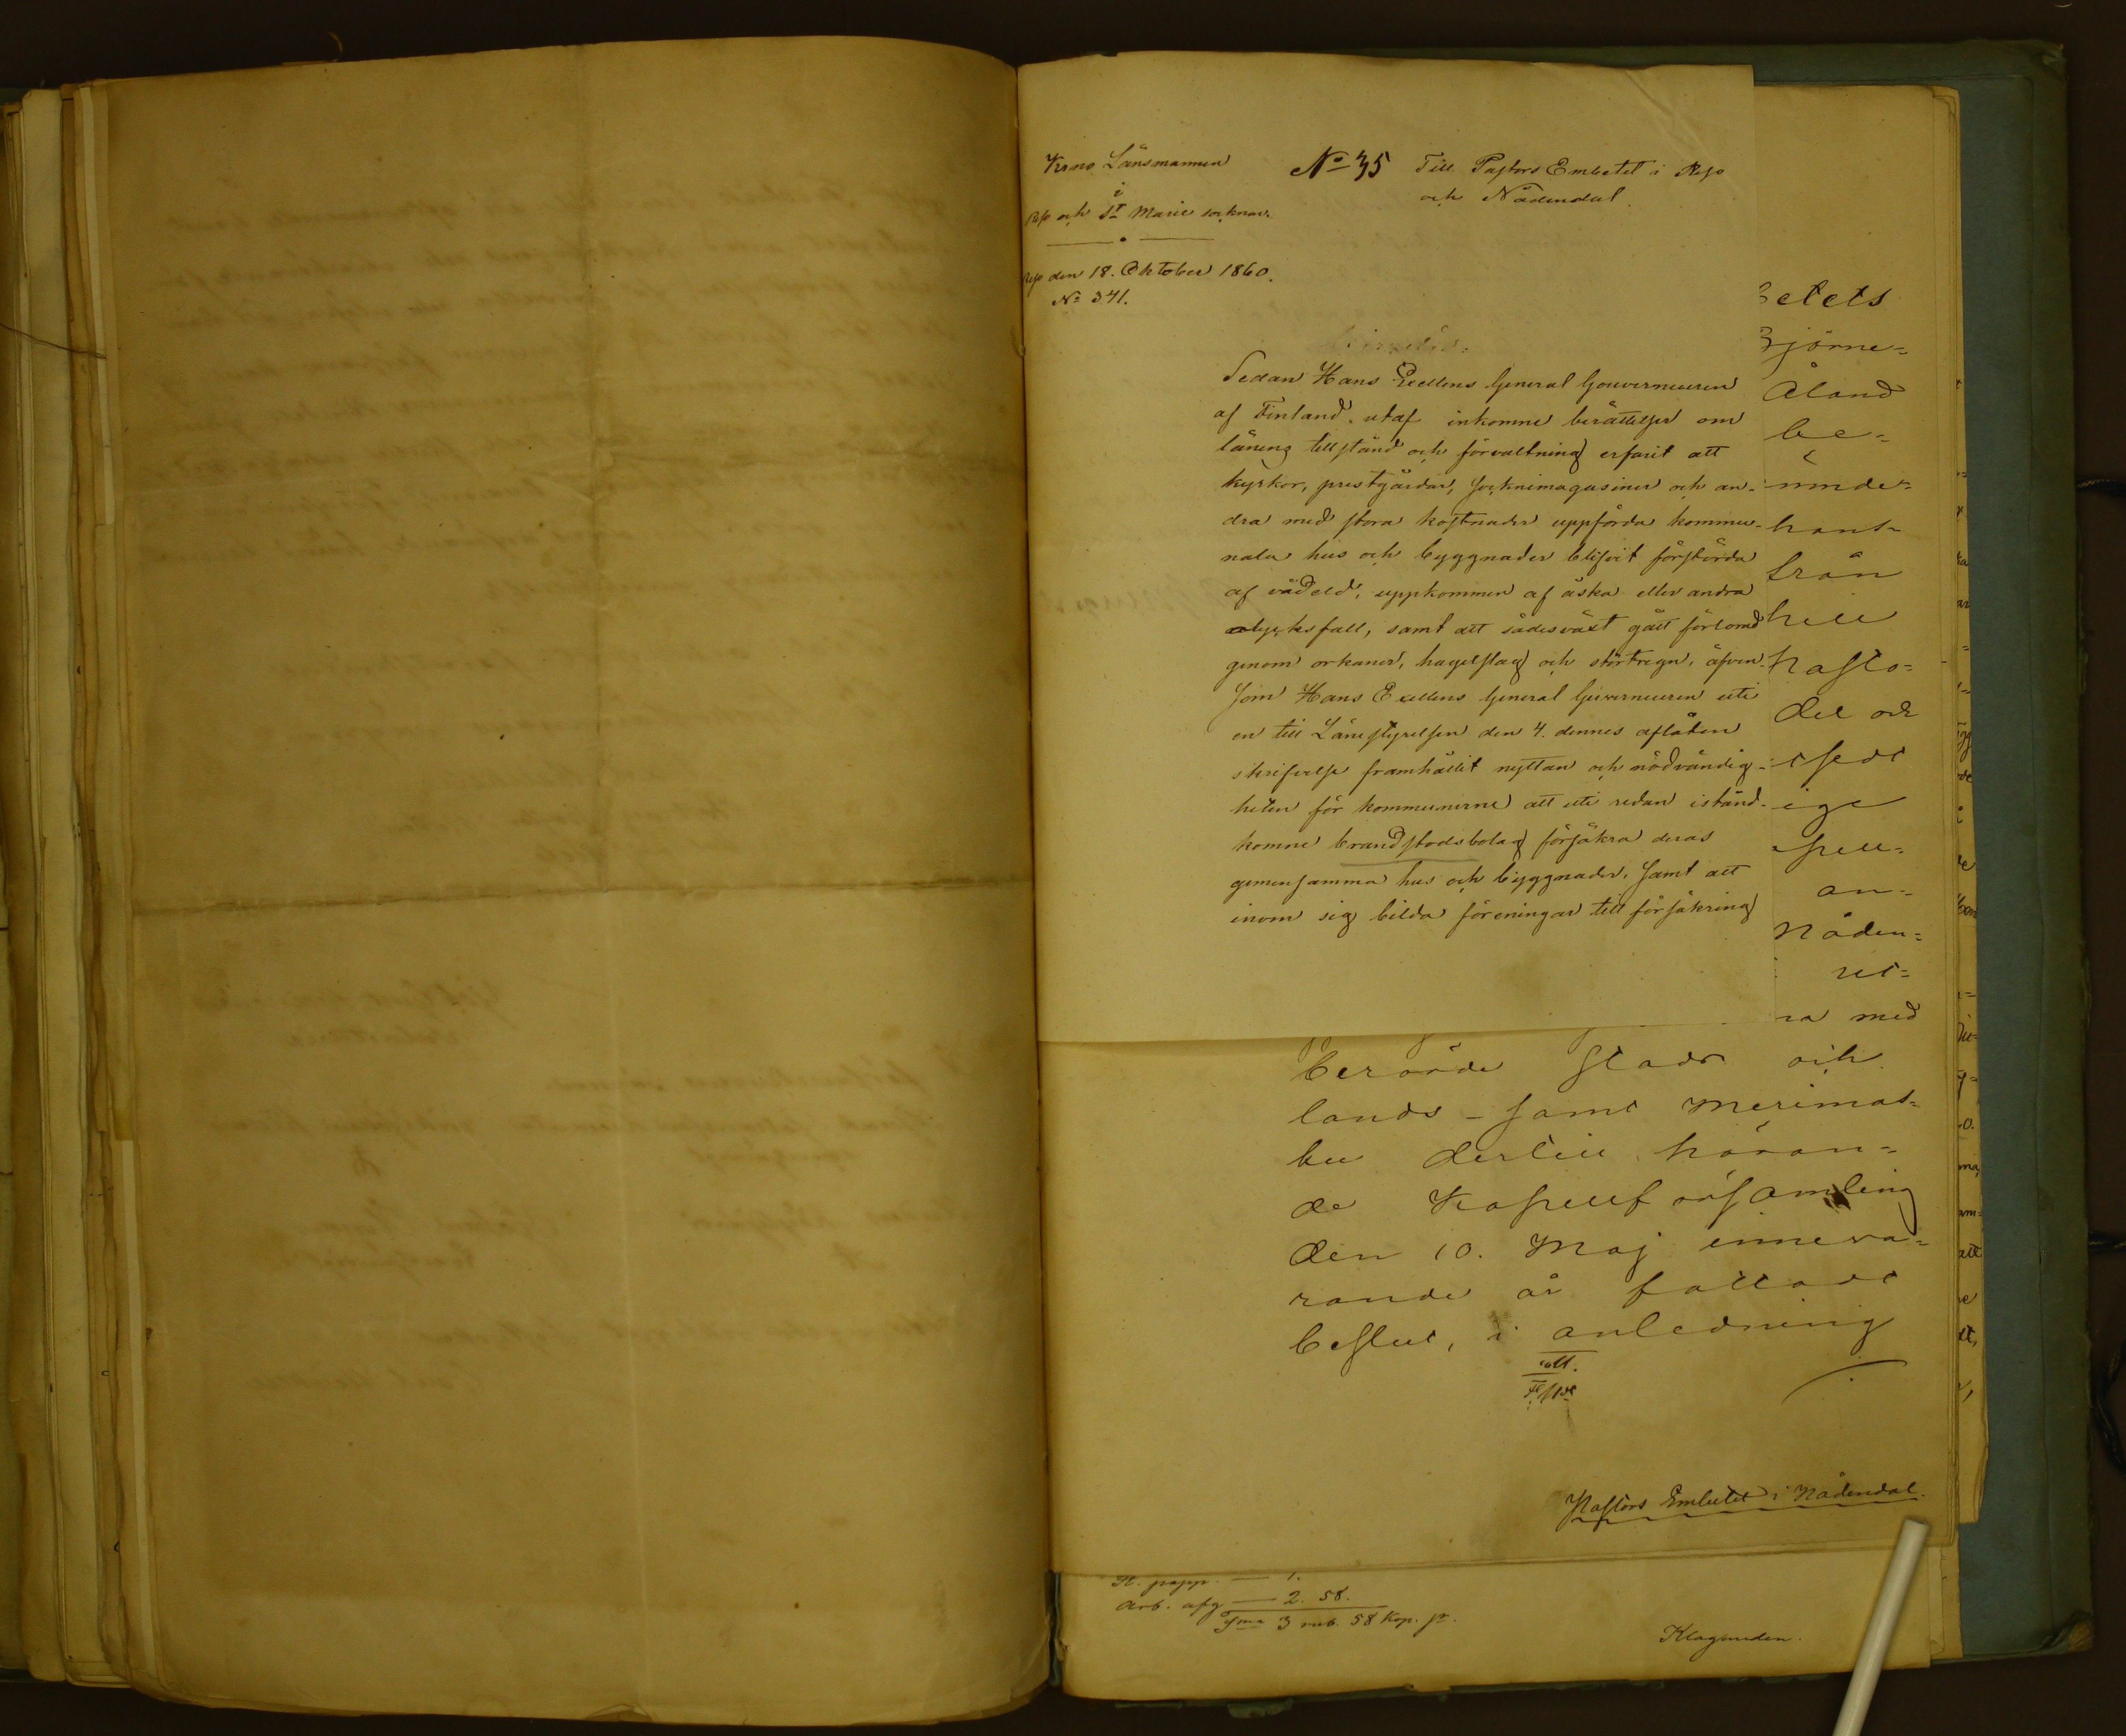 Krono Länsmannen
i
Reso och St Marie socknar.
Reso den 18. Oktober 1860.
No 341.
No 35
Till Pastors Embetet i Reso
och Nådendal.
Sedan Hans Excellens General Gouverneuren
af Finland, utaf inkomne berättelser om
länens tillstånd och förvaltning erfarit att
kyrkor, prestgårdar, socknemagasiner och an-
dra med stora kostnader uppförda kommu-
nala hus och byggnader blifvit förstörda
af vådeld, uppkommen af åska eller andra
olycksfall, samt att sädesväxt gått förlorad
genom orkaner, hagelslag och störtregn, äfven-
som Hans Exellens General Guverneuren uti
en till Länestyrelsen den 4. dennes aflåten
skrifvelse framhållit nyttan och nödvändig-
heten för kommunerne att uti redan istånd-
komne brandstodsbolag försäkra deras
gemensamma hus och byggnader, samt att
inom sig bilda föreningar till försäkring
betets
Björne-
Åland
be-
hans-
från
till
Pasto-
del och
ige
an-
Nåden-
ra med
berörde stads och
lands- samt Merimas-
ku dertill höran-
de Kapellförsamling
den 10. Maj inneva-
rande år fattadt
beslut, i anledning
att.
Pastors Embetet i Nådendal.
St. papp. — 1.
Arb. afg — 2. 58.
Sma 3 rub. 58 Kop. sr.
Klaganden.